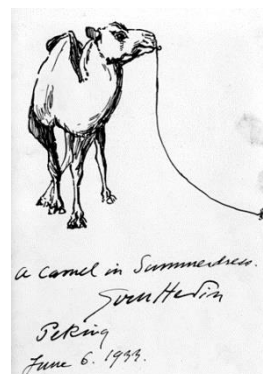 a camel in Summerdress.
Sven Hedin
Peking
June 6. 1933.